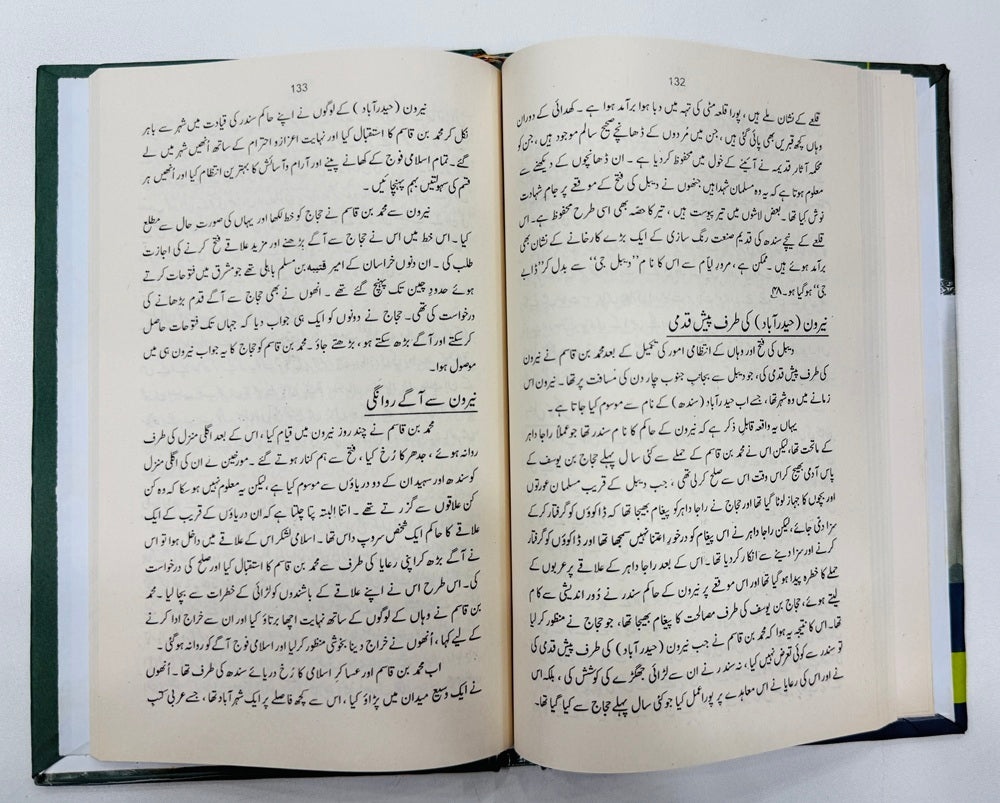 132
قلعے کے نشان ملے ہیں، پورا قلعہ مٹی کی تہہ میں دبا ہوا برآمد ہوا ہے ۔ کھدائی کے دوران
وہاں کچھ قبریں بھی پائی گئی ہیں، جن میں مُردوں کے ڈھانچے صحیح سالم موجود ہیں، جن کو
محکمہ آثار قدیمہ نے آئینے کے خول میں محفوظ کر دیا ہے ۔ ان ڈھانچوں کے دیکھنے سے
معلوم ہوتا ہے کہ یہ وہ مسلمان شہدا ہیں جنھوں نے دیبل کی فتح کے موقعے پر جام شہادت
نوش کیا تھا ۔ بعض لاشوں میں تیر پیوست ہیں ، تیر کا حصّہ بھی اسی طرح محفوظ ہے۔ اس
قلعے کے نیچے سندھ کی قدیم صنعت رنگ سازی کے ایک بڑے کارخانے کے نشان بھی
برآمد ہوئے ہیں ۔ ممکن ہے ، مرورِ ایّام سے اس کا نام ’’دیبل جی‘‘ سے بدل کر ’’ڈابے
جی‘‘ ہو گیا ہو۔ ۴۸
نیرون (حیدرآباد) کی طرف پیش قدمی
دیبل کی فتح اور وہاں کے انتظامی امور کی تکمیل کے بعد محمد بن قاسم نے نیرون
کی طرف پیش قدمی کی، جو دیبل سے بجانب جنوب چار دن کی مسافت پر تھا ۔ نیرون اس
زمانے میں وہ شہر تھا، جسے اب حیدرآباد (سندھ) کے نام سے موسوم کیا جاتا ہے ۔
یہاں یہ واقعہ قابل ذکر ہے کہ نیرون کے حاکم کا نام سندر تھا جو عملاً راجا داہر
کے ماتحت تھا، لیکن اس نے محمد بن قاسم کے حملے سے کئی سال پہلے حجاج بن یوسف کے
پاس آدمی بھیج کر اس وقت اس سے صلح کر لی تھی ، جب دیبل کے قریب مسلمان عورتوں
اور بچوں کا جہاز لوٹا گیا تھا اور حجاج نے راجا داہر کو پیغام بھیجا تھا کہ ڈاکوؤں کو گرفتار کر کے
سزا دی جائے، لیکن راجا داہر نے اس پیغام کو درخورِ اعتنا نہیں سمجھا تھا اور ڈاکوؤں کو گرفتار
کرنے اور سزا دینے سے انکار کر دیا تھا ۔ اس کے بعد راجا داہر کے علاقے پر عربوں کے
حملے کا خطرہ پیدا ہو گیا تھا اور اس موقعے پر نیرون کے حاکم سندر نے دُور اندیشی سے کام
لیتے ہوئے، حجاج بن یوسف کی طرف مصالحت کا پیغام بھیجا تھا، جو حجاج نے منظور کر لیا
تھا۔ اس کا نتیجہ یہ ہوا کہ محمد بن قاسم نے جب نیرون (حیدرآباد) کی طرف پیش قدمی کی
تو سندر سے کوئی تعرض نہیں کیا ، نہ سندر نے ان سے لڑائی جھگڑے کی کوشش کی ، بلکہ اس
نے اور اس کی رعایا نے اس معاہدے پر پورا عمل کیا جو کئی سال پہلے حجاج سے کیا گیا تھا۔
133
نیرون (حیدرآباد) کے لوگوں نے اپنے حاکم سندر کی قیادت میں شہر سے باہر
نکل کر محمد بن قاسم کا استقبال کیا اور نہایت اعزاز و احترام کے ساتھ اُنھیں شہر میں لے
گئے۔ تمام اسلامی فوج کے کھانے پینے اور آرام و آسائش کا بہترین انتظام کیا اور اُنھیں ہر
قسم کی سہولتیں بہم پہنچائیں ۔
نیرون سے محمد بن قاسم نے حجاج کو خط لکھا اور یہاں کی صورتِ حال سے مطلع
کیا ۔ اس خط میں اس نے حجاج سے آگے بڑھنے اور مزید علاقے فتح کرنے کی اجازت
طلب کی ۔ ان دنوں خراسان کے امیر قتیبہ بن مسلم باہلی تھے جو مشرق میں فتوحات کرتے
ہوئے حدودِ چین تک پہنچ گئے تھے ۔ انھوں نے بھی حجاج سے آگے قدم بڑھانے کی
درخواست کی تھی۔ حجاج نے دونوں کو ایک ہی جواب دیا کہ جہاں تک فتوحات حاصل
کر سکتے اور آگے بڑھ سکتے ہو، بڑھتے جاؤ۔ محمد بن قاسم کو حجاج کا یہ جواب نیرون ہی میں
موصول ہوا۔
نیرون سے آگے روانگی
محمد بن قاسم نے چند روز نیرون میں قیام کیا ، اس کے بعد اگلی منزل کی طرف
روانہ ہوئے ، جدھر کا رُخ کیا ، فتح سے ہم کنار ہوتے گئے ۔ مورخین نے ان کی اگلی منزل
کو سندھ اور سہیدان کے دو دریاؤں سے موسوم کیا ہے، لیکن یہ معلوم نہیں ہو سکا کہ وہ کن
کن علاقوں سے گزرتے تھے ۔ اتنا البتہ پتا چلتا ہے کہ ان دریاؤں کے قریب کے ایک
علاقے کا حاکم ایک شخص سروپ داس تھا۔ اسلامی لشکر اس کے علاقے میں داخل ہوا تو اس
نے آگے بڑھ کر اپنی رعایا کی طرف سے محمد بن قاسم کا استقبال کیا اور صلح کی درخواست
کی۔ اس طرح اس نے اپنے علاقے کے باشندوں کو لڑائی کے خطرات سے بچا لیا۔ محمد
بن قاسم نے وہاں کے لوگوں کے ساتھ نہایت اچھا برتاؤ کیا اور ان سے خراج ادا کرنے
کے لیے کہا، اُنھوں نے خراج دینا بخوشی منظور کر لیا اور اسلامی فوج آگے کو روانہ ہو گئی ۔
اب محمد بن قاسم اور عساکرِ اسلامی کا رُخ دریائے سندھ کی طرف تھا ۔ اُنھوں
نے ایک وسیع میدان میں پڑاؤ کیا ، اس سے کچھ فاصلے پر ایک شہر آباد تھا ، جسے عربی کتب